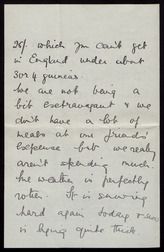 25/- which you can't get
in England under about
3 or 4 guineas.
We are not being a
bit extravagant & we
don't have a lot of
meals at our friends'
expense but we really
aren't spending much.
The weather is perfectly
rotten. It is snowing
hard again today & now
is lying quite thick